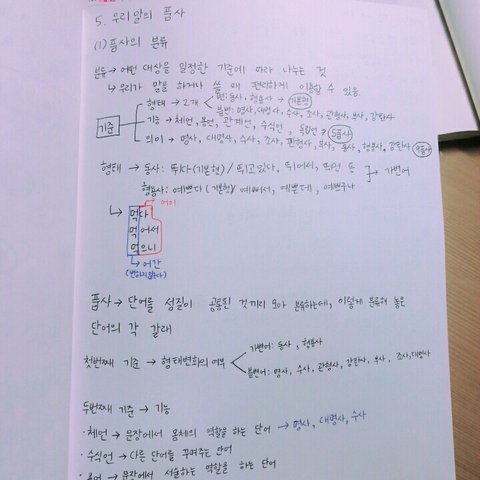 5. 우리말의 품사
(1) 품사의 분류
분류 → 어떤 대상을 일정한 기준에 따라 나누는 것
↳ 우리가 말을 하거나 쓸 때 편리하게 이용할 수 있음.
기준
형태 → 2개 < 변: 동사, 형용사 → 기본형
불변: 명사, 대명사, 수사, 조사, 관형사, 부사, 감탄사
기능 → 체언, 용언, 관계언, 수식언, 독립언 → 5품사
의미 → 명사, 대명사, 수사, 조사, 관형사, 부사, 동사, 형용사, 감탄사 9품사
형태 → 동사: 뛰다(기본형) / 뛰고있다, 뛰어서, 뛰면 등
형용사: 예쁘다 (기본형) 예뻐서, 예쁜데, 예쁘구나
} → 가변어
↳ 먹다 → 어미
먹어서
먹으니
↳ 어간
(변하지않는다)
품사 → 단어를 성질이 공통된 것끼리 모아 분류하는데, 이렇게 분류해 놓은
단어의 각 갈래
첫번째 기준 → 형태변화의 여부 < 가변어: 동사, 형용사
불변어: 명사, 수사, 관형사, 감탄사, 부사, 조사, 대명사
두번째 기준 → 기능
· 체언 → 문장에서 몸체의 역할을 하는 단어 → 명사, 대명사, 수사
· 수식언 → 다른 단어를 꾸며주는 단어
· 용언 → 문장에서 서술하는 역할을 하는 단어